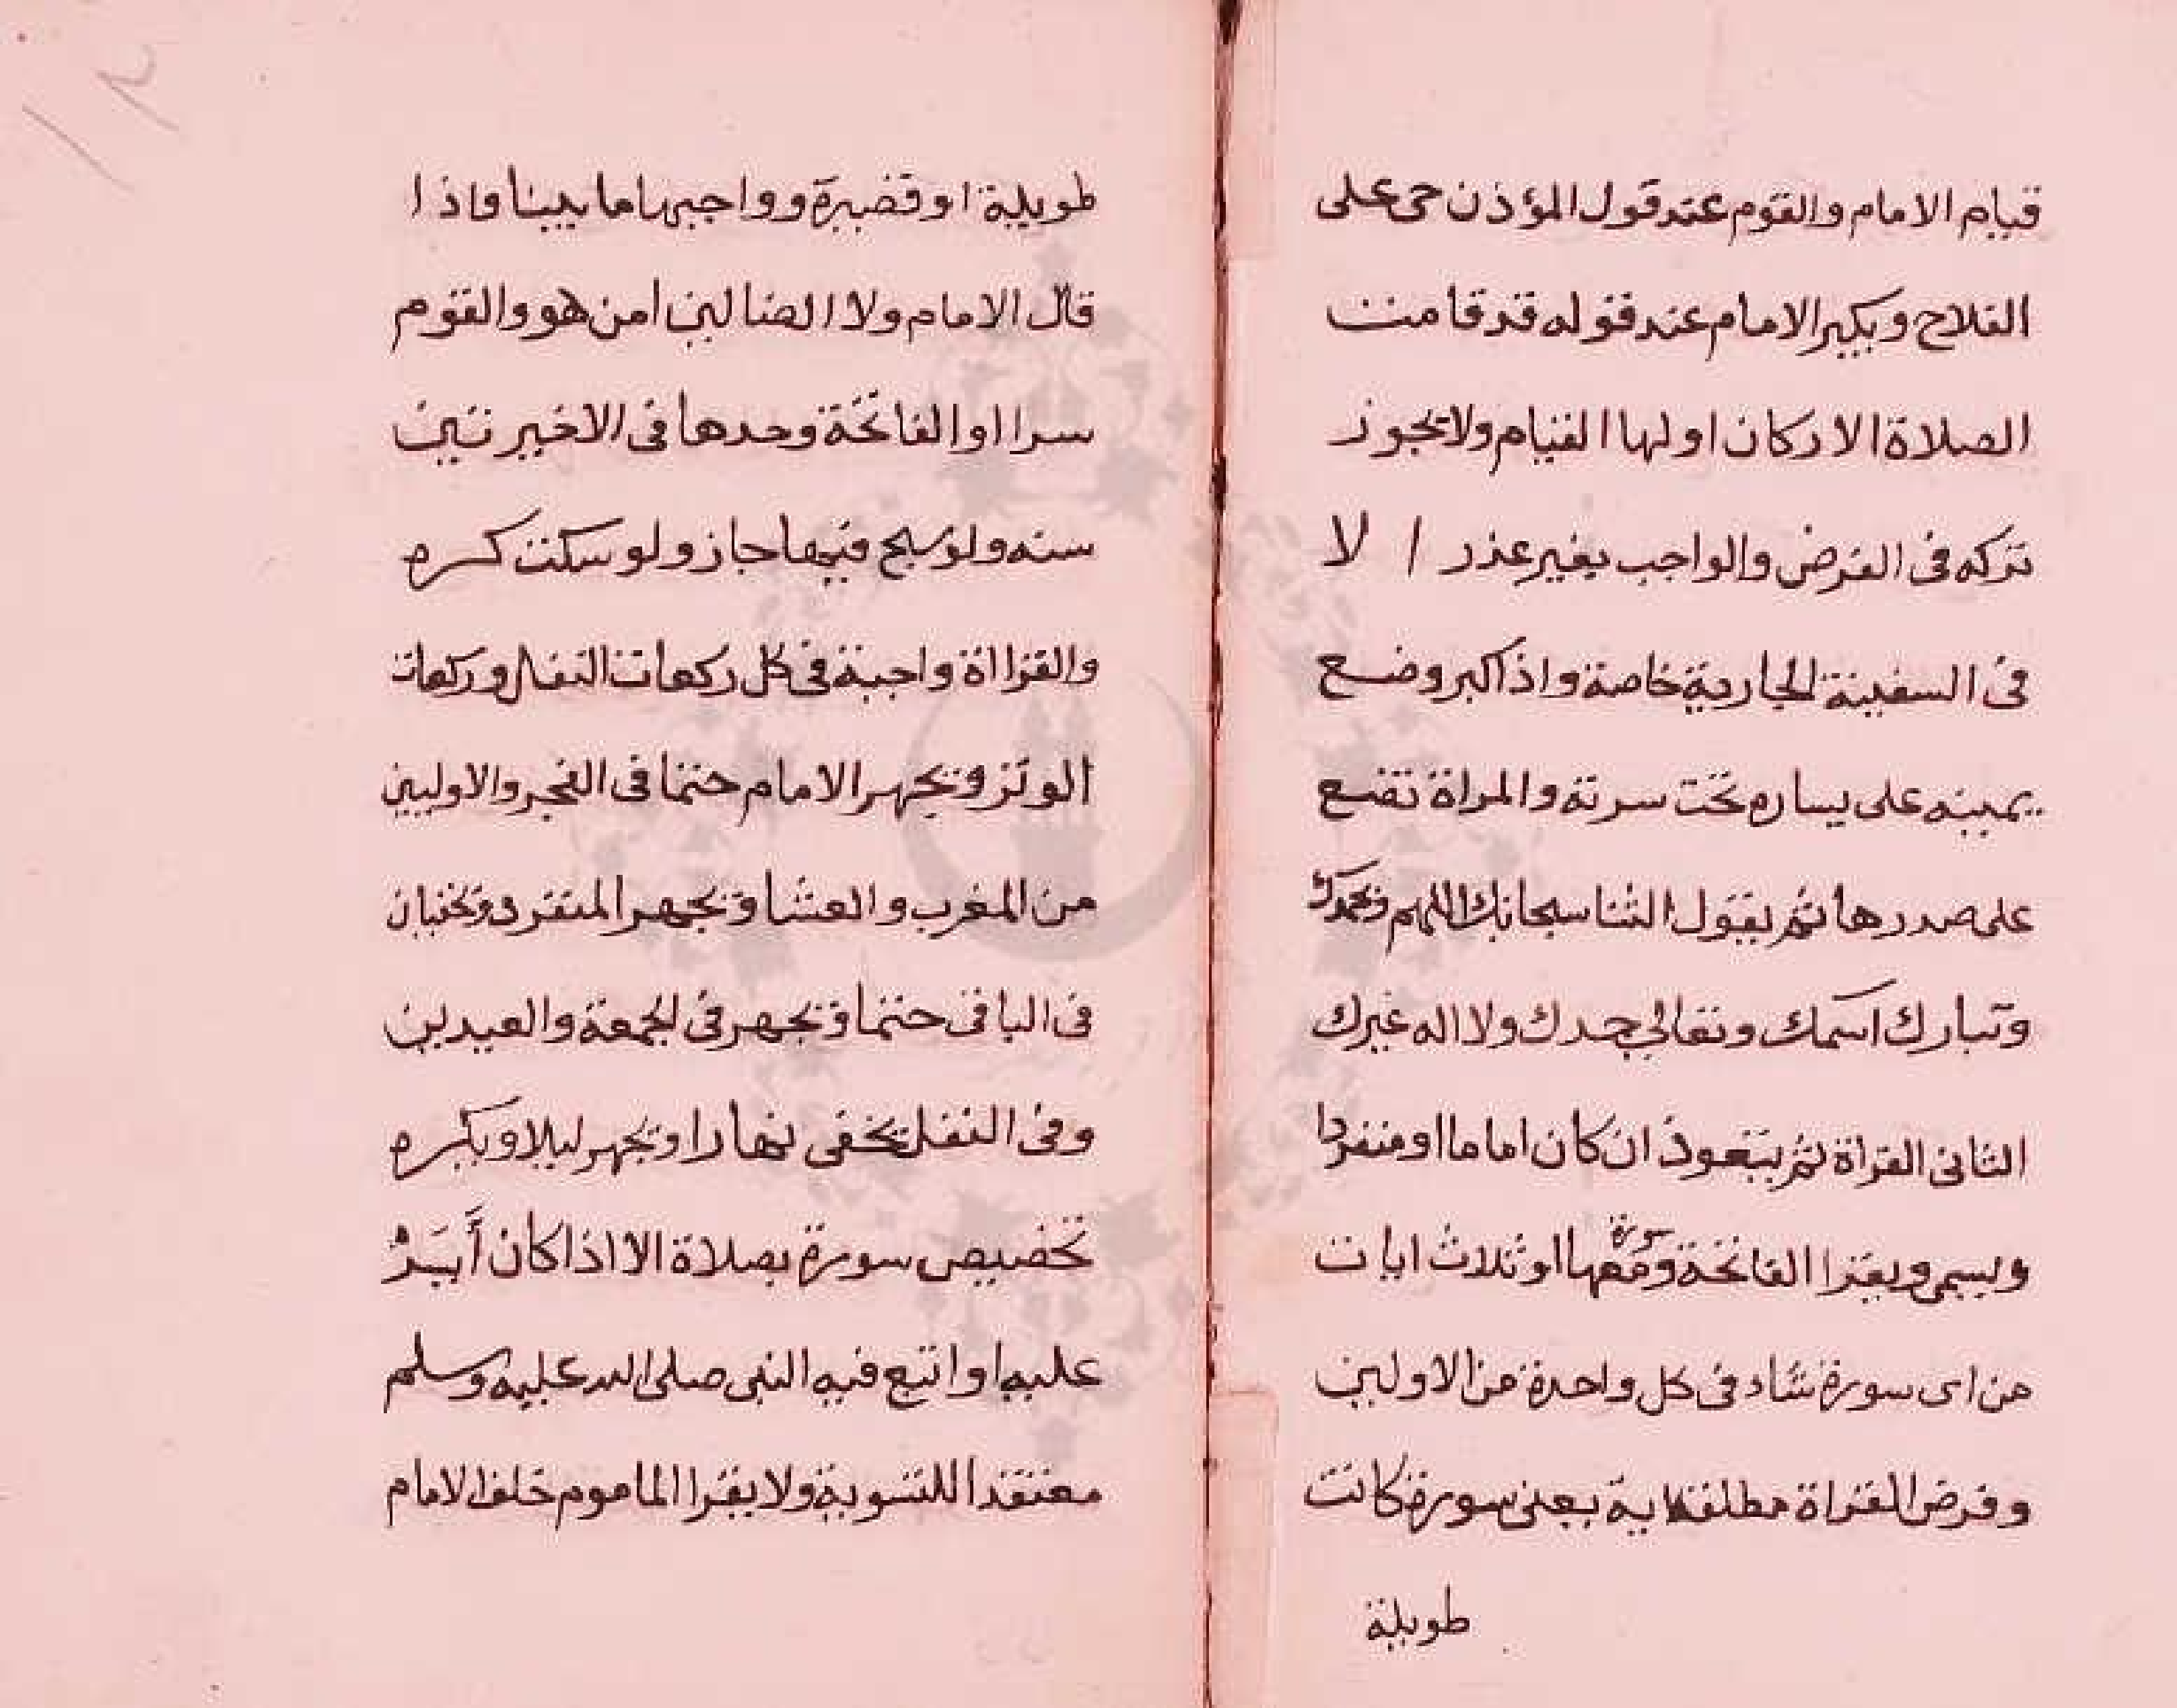 قيام الامام والقوم عند قول المؤذن حى على
الفلاح ويكبر الامام عند قوله قد قامت
الصلاة الاركان اولها القيام ولا يجوز
تركه فى الفرض والواجب بغير عذر / لا
فى السفينة الجارية خاصة واذا كبر وضع
يمينه على يساره تحت سرته والمراة تضع
على صدرها ثم يقول الثنا سبحانك اللهم وبحمدك
وتبارك اسمك وتعالى جدك ولا اله غيرك
الثانى القراة ثم يتعوذ ان كان اماما او منفردا
ويسمى ويقرا الفاتحة ومعها سورة او ثلاث ايات
من اى سورة شاء فى كل واحدة من الاوليين
وفرض القراة مطلقا اية يعنى سورة كانت
طويلة
طويلة او قصيرة وواجبها ما بينا واذا
قال الامام ولا الضالين امن هو والقوم
سرا او الفاتحة وحدها فى الاخيرتين
سنه ولو سبح فيهما جاز ولو سكت كره
والقرااة واجبة فى كل ركعات النفل وركعات
الوتر ويجهر الامام حتما فى الفجر والاوليين
من المغرب والعشا ويجهر المنفرد ويخفيان
فى الباقى حتما ويجهر فى الجمعة والعيدين
وفى النفل يخفى نهارا ويجهر ليلا ويكره
تخصيص سورة بصلاة الا اذا كان أيسر
عليه او اتبع فيه النبى صلى الله عليه وسلم
معتقدا للتسوية ولا يقرا الماموم خلف الامام